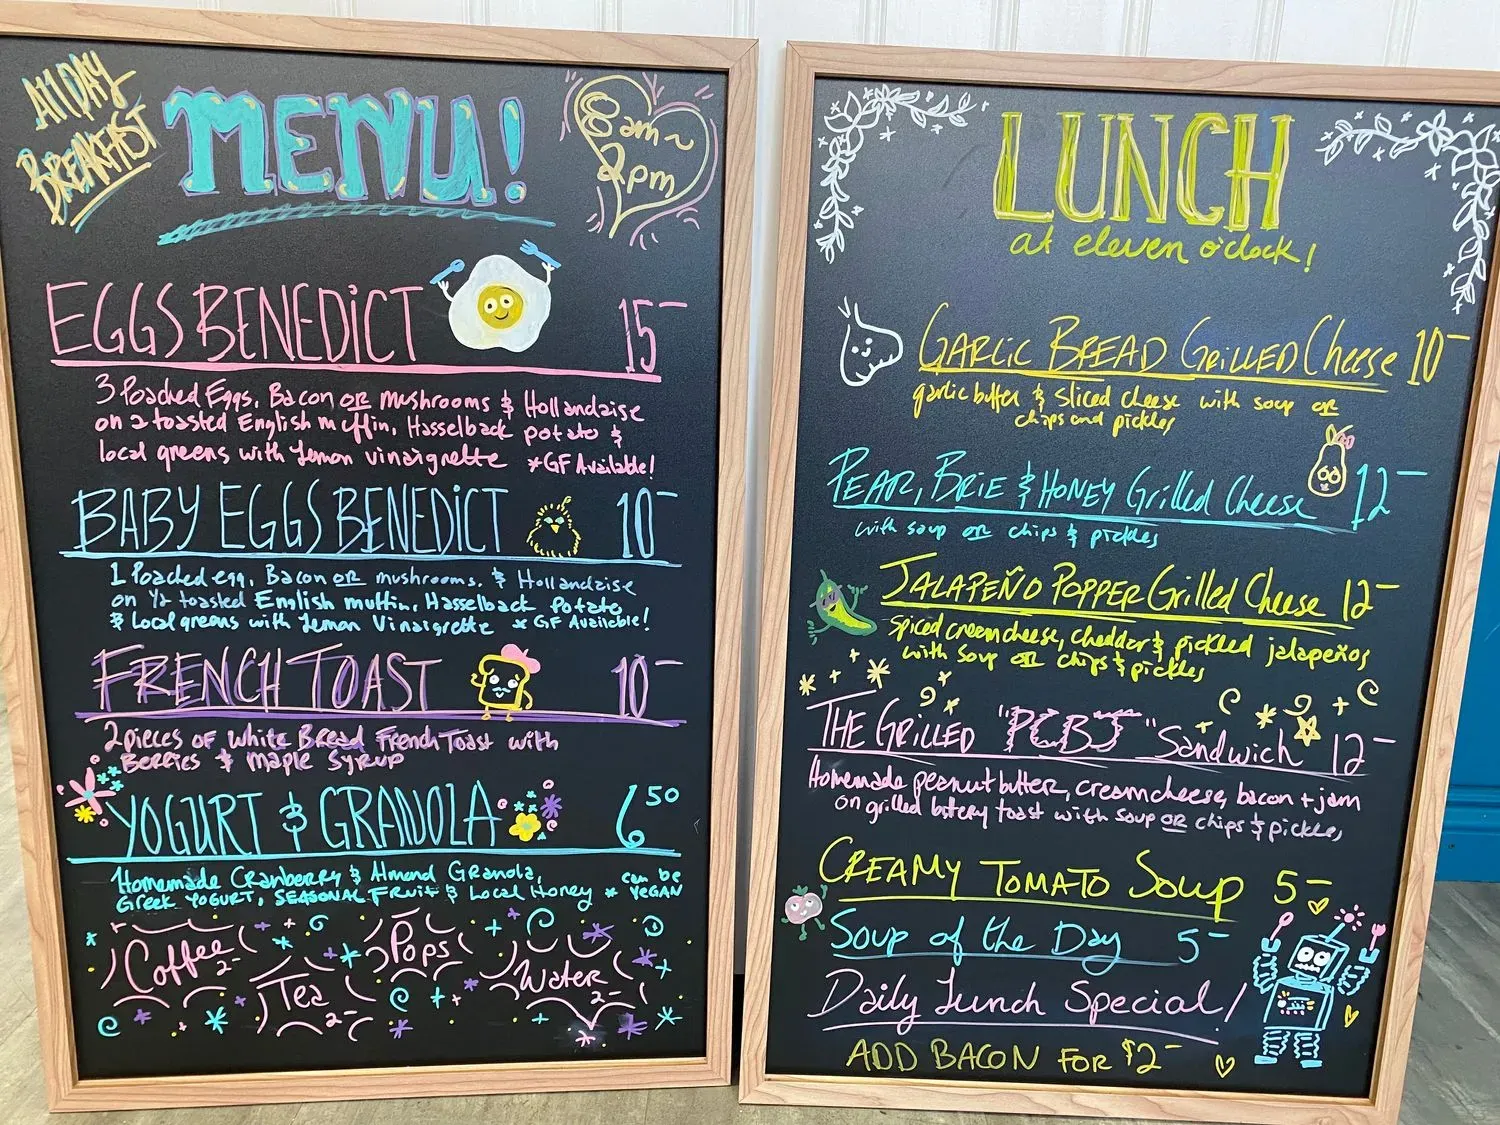 All DAY
BREAKFAST
MENU!
8am~
2pm
EGGS BENEDICT 15-
3 Poached Eggs, Bacon OR mushrooms & Hollandaise
on 2 toasted English muffin, Hasselback potato &
local greens with Lemon vinaigrette *GF Available!
BABY EGGS BENEDICT 10-
1 Poached egg, Bacon OR mushrooms, & Hollandaise
on 1/2 toasted English muffin, Hasselback Potato
& Local greens with Lemon Vinaigrette *GF Available!
FRENCH TOAST 10-
2 pieces of White Bread French Toast with
Berries & Maple Syrup
YOGURT & GRANOLA 6 50
Homemade Cranberry & Almond Granola,
Greek YOGURT, SEASONAL FRUIT & Local Honey * can be
VEGAN
Coffee 2-
Tea 2-
Pops
Water 2-
LUNCH
at eleven o'clock!
GARLIC BREAD GRILLED Cheese 10-
garlic butter & sliced cheese with soup OR
chips and pickles
PEAR, BRIE & HONEY Grilled Cheese 12-
with soup OR chips & pickles
JALAPEÑO POPPER Grilled Cheese 12-
spiced cream cheese, cheddar & pickled jalapeños
with soup OR chips & pickles
THE GRILLED "PCBJ" Sandwich 12-
Homemade peanut butter, cream cheese, bacon + jam
on grilled buttery toast with soup OR chips & pickles
CREAMY TOMATO Soup 5-
Soup of the Day 5-
Daily Lunch Special!
ADD BACON FOR $2-